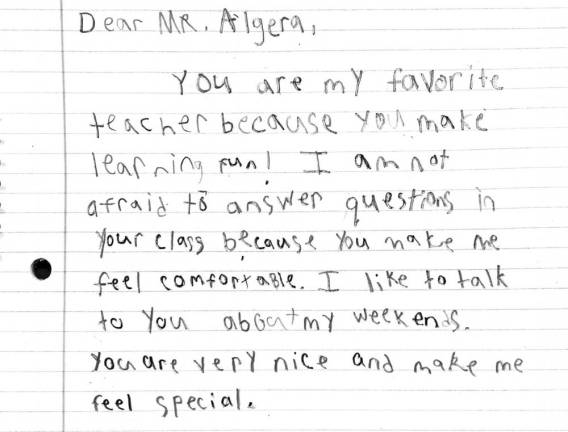 Dear MR. Algera,
You are my favorite
teacher because you make
learning fun! I am not
afraid to answer questions in
your class because you make me
feel comfortable. I like to talk
to you about my weekends.
You are very nice and make me
feel special.